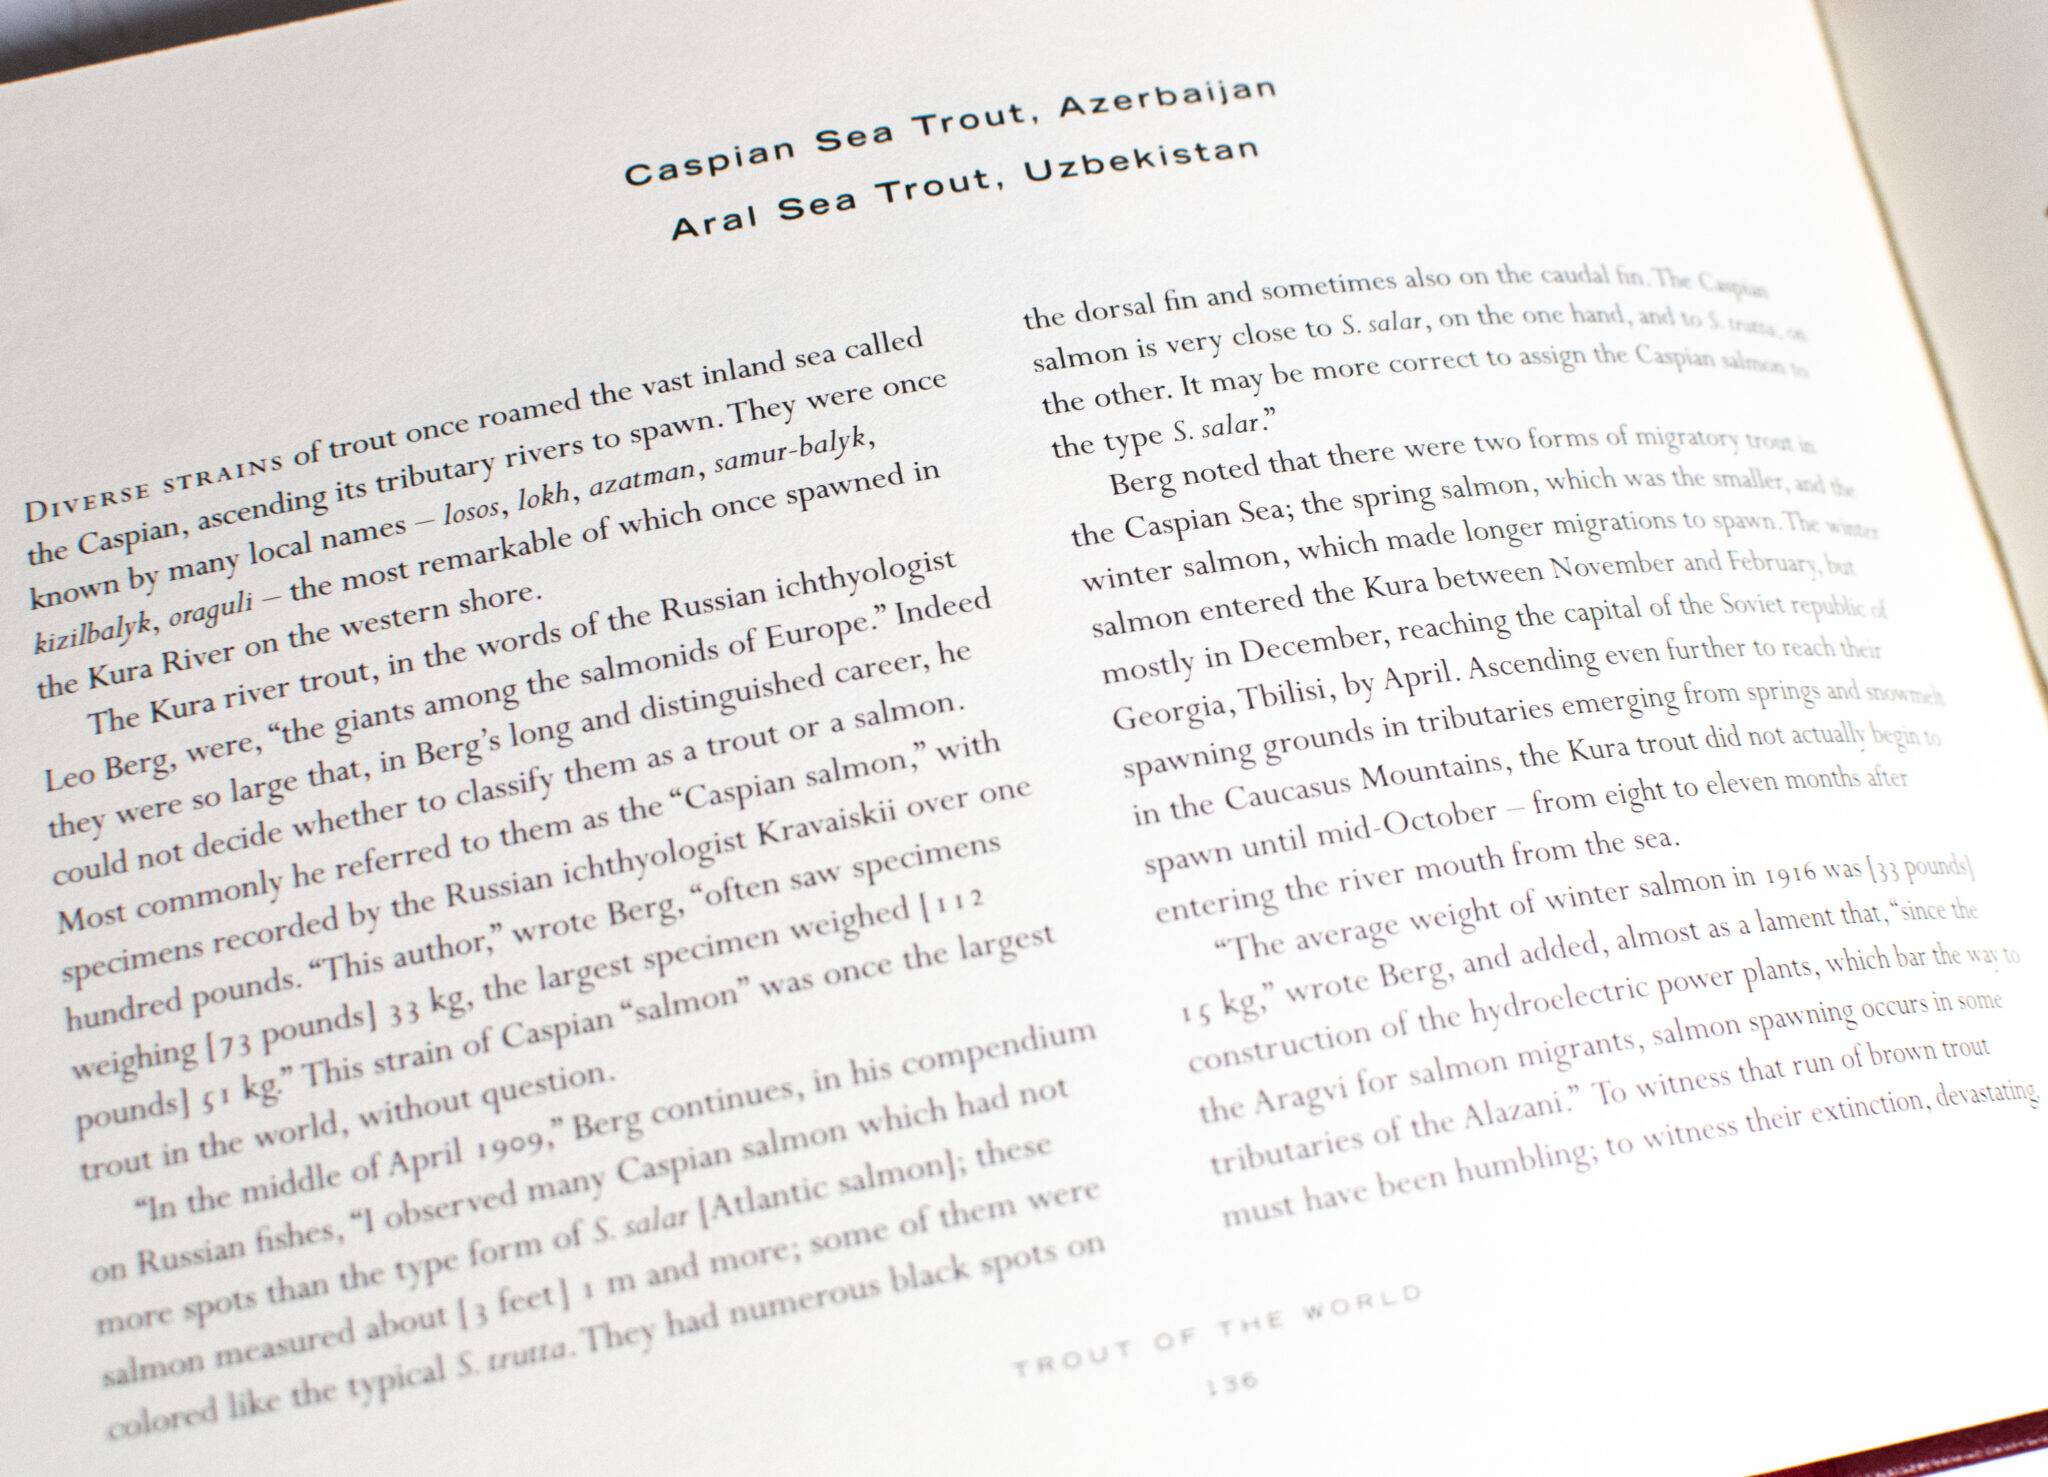 Caspian Sea Trout, Azerbaijan
Aral Sea Trout, Uzbekistan
DIVERSE STRAINS of trout once roamed the vast inland sea called
the Caspian, ascending its tributary rivers to spawn. They were once
known by many local names – losos, lokh, azatman, samur-balyk,
kizilbalyk, oraguli – the most remarkable of which once spawned in
the Kura River on the western shore.
The Kura river trout, in the words of the Russian ichthyologist
Leo Berg, were, “the giants among the salmonids of Europe.” Indeed
they were so large that, in Berg’s long and distinguished career, he
could not decide whether to classify them as a trout or a salmon.
Most commonly he referred to them as the “Caspian salmon,” with
specimens recorded by the Russian ichthyologist Kravaiskii over one
hundred pounds. “This author,” wrote Berg, “often saw specimens
weighing [73 pounds] 33 kg, the largest specimen weighed [112
pounds] 51 kg.” This strain of Caspian “salmon” was once the largest
trout in the world, without question.
“In the middle of April 1909,” Berg continues, in his compendium
on Russian fishes, “I observed many Caspian salmon which had not
more spots than the type form of S. salar [Atlantic salmon]; these
salmon measured about [3 feet] 1 m and more; some of them were
colored like the typical S. trutta. They had numerous black spots on
the dorsal fin and sometimes also on the caudal fin. The Caspian
salmon is very close to S. salar, on the one hand, and to S. trutta, on
the other. It may be more correct to assign the Caspian salmon to
the type S. salar.”
Berg noted that there were two forms of migratory trout in
the Caspian Sea; the spring salmon, which was the smaller, and the
winter salmon, which made longer migrations to spawn. The winter
salmon entered the Kura between November and February, but
mostly in December, reaching the capital of the Soviet republic of
Georgia, Tbilisi, by April. Ascending even further to reach their
spawning grounds in tributaries emerging from springs and snowmelt
in the Caucasus Mountains, the Kura trout did not actually begin to
spawn until mid-October – from eight to eleven months after
entering the river mouth from the sea.
“The average weight of winter salmon in 1916 was [33 pounds]
15 kg,” wrote Berg, and added, almost as a lament that, “since the
construction of the hydroelectric power plants, which bar the way to
the Aragvi for salmon migrants, salmon spawning occurs in some
tributaries of the Alazani.” To witness that run of brown trout
must have been humbling; to witness their extinction, devastating.
TROUT OF THE WORLD
136